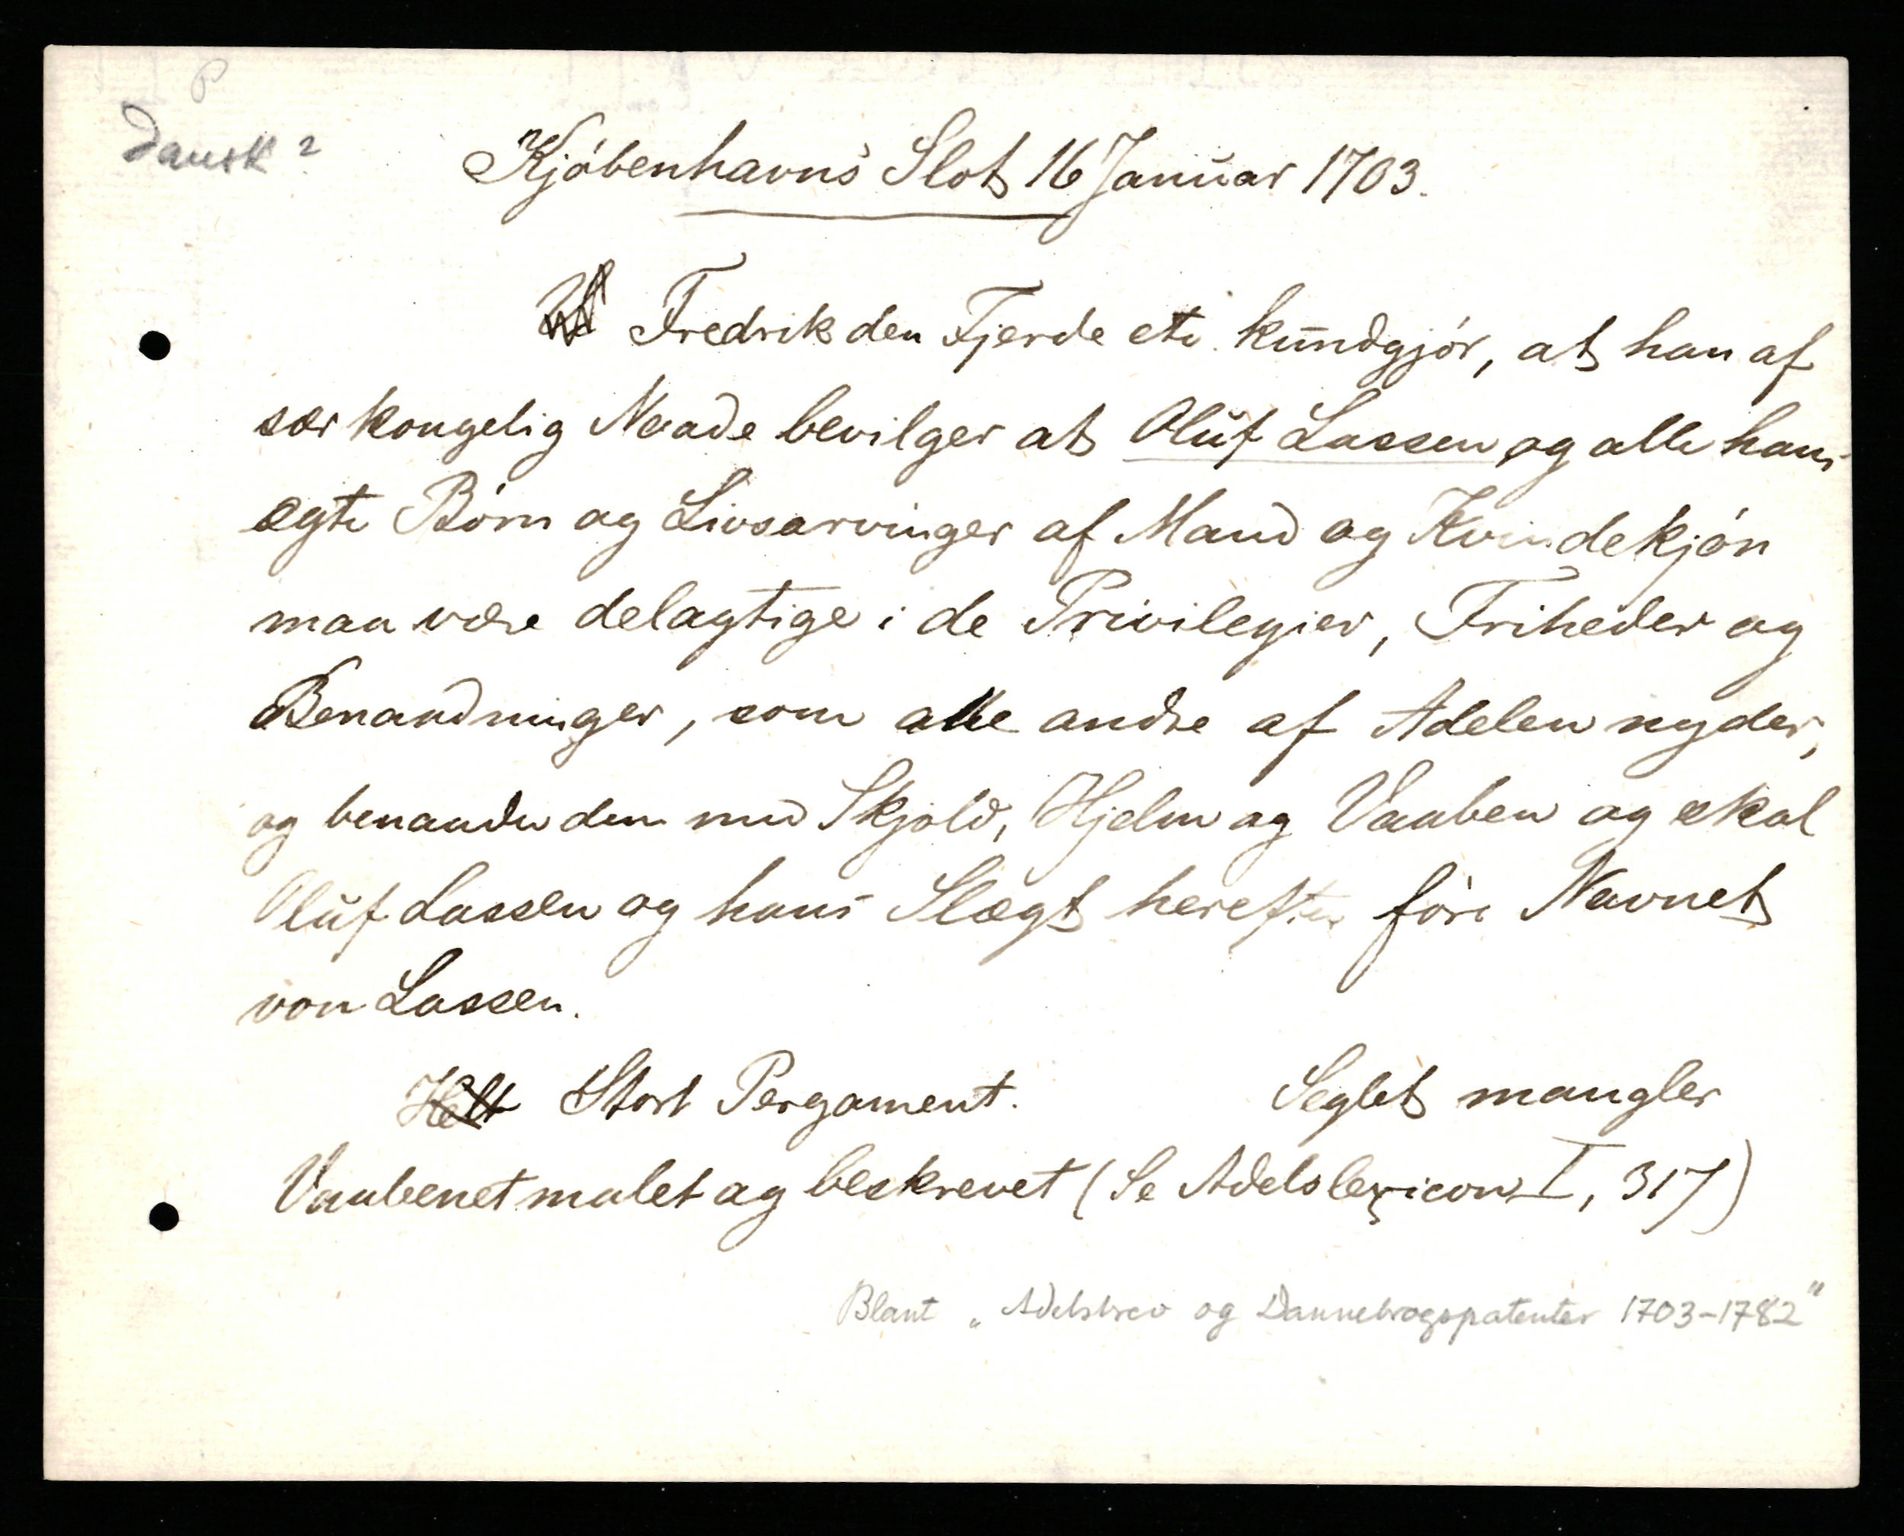 P
Dansk?
Kjøbenhavns Slot 16 Januar 1703.
Fredrik den Fjerde etc. kundgjør, at han af
sær kongelig Naade bevilger at Oluf Lassen og alle hans
ægte Børn og Livsarvinger af Mand og Kvindekjøn
maa være delagtige i de Privilegier, Friheder og
Benaadninger, som alle andre af Adelen nyder,
og benaader dem med Skjold, Hjelm og Vaaben og skal
Oluf Lassen og hans Slægt herefter føre Navnet
von Lassen.
Helt Stort Pergament. Seglet mangler
Vaabenet malet og beskrevet (Se Adelslexicon I, 317)
Blant „Adelsbrev og Dannebrogspatenter 1703-1782"